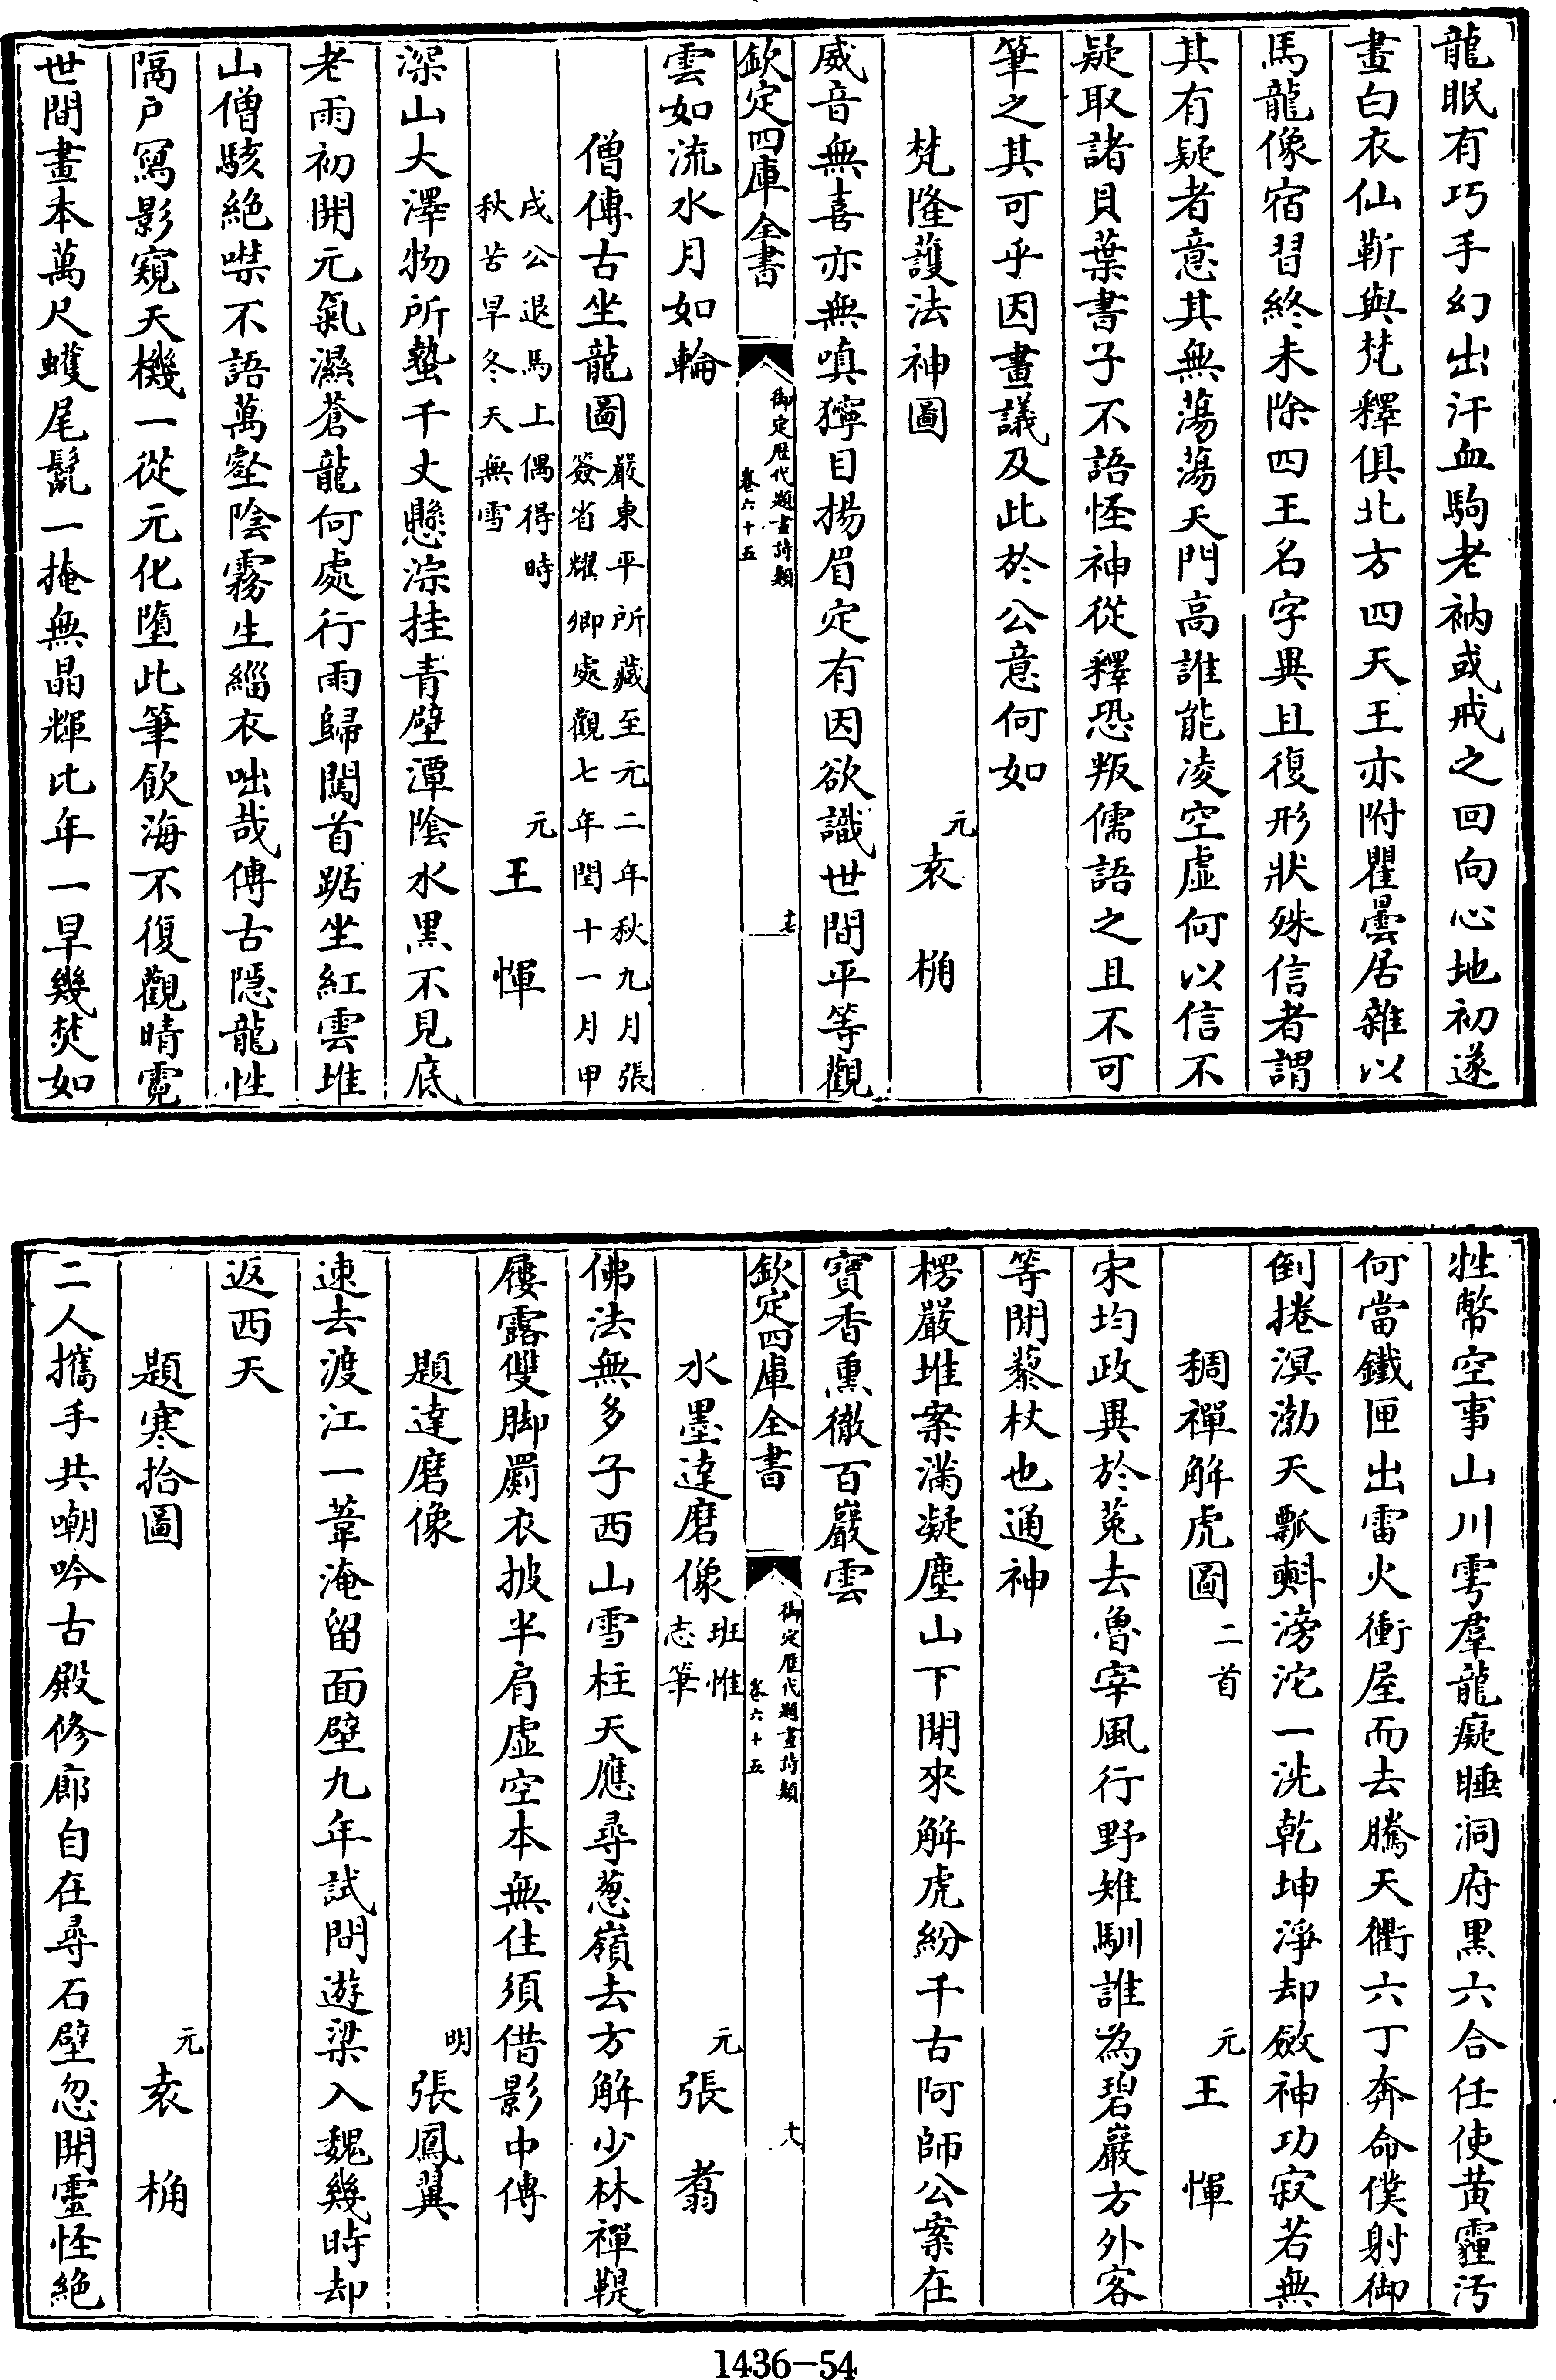 龍眠有巧手幻出汗血駒老衲或戒之回向心地初遂
畫白衣仙斬與梵釋俱北方四天王亦附瞿曇居雜以
馬龍像宿習終未除四王名字異且復形狀殊信者謂
其有疑者意其無蕩蕩天門高誰能凌空虛何以信不
疑取諸貝葉書子不語怪神從釋恐叛儒語之且不可
筆之其可乎因畫議及此於公意何如
梵隆護法神圖 元袁桷
威音無喜亦無嗔獰目揚眉定有因欲識世間平等觀
欽定四庫全書 御定歷代題畫詩類 卷六十五 十七
雲如流水月如輪
僧傳古坐龍圖 嚴東平所藏至元二年秋九月張
簽省耀卿處觀七年閏十一月甲
戌公退馬上偶得時
秋苦旱冬天無雪 元王惲
深山大澤物所蟄千丈懸淙挂青壁潭隂水黒不見底
老雨初開元氣濕蒼龍何處行雨歸闖首踞坐紅雲堆
山僧駭絶噤不語萬壑陰霧生緇衣咄哉傳古隱龍性
隔戶寫影窺天機一從元化墮此筆飲海不復觀晴霓
世間畫本萬尺蠖尾鬣一掩無晶輝比年一旱幾焚如
牲幣空事山川雩羣龍癡睡洞府黒六合任使黄霾汚
何當鐵匣出雷火衝屋而去騰天衢六丁奔命僕射御
倒捲溟渤天瓢㪺滂沱一洗乾坤淨却斂神功寂若無
稠禪解虎圖 二首 元王惲
宋均政異於菟去魯宰風行野雉馴誰為碧巖方外客
等閒藜杖也通神
楞嚴堆案滿凝塵山下閒來解虎紛千古阿師公案在
寶香熏徹百巖雲
欽定四庫全書 御定歷代題畫詩類 卷六十五 十八
水墨達磨像 班惟
志筆 元張翥
佛法無多子西山雪柱天應尋葱嶺去方解少林禪鞮
屨露雙脚罽衣披半肩虛空本無住須借影中傳
題達磨像 明張鳳翼
速去渡江一葦淹留面壁九年試問遊梁入魏幾時却
返西天
題寒拾圖 元袁桷
二人攜手共嘲吟古殿修廊自在尋石壁忽開靈怪絶
1436-54